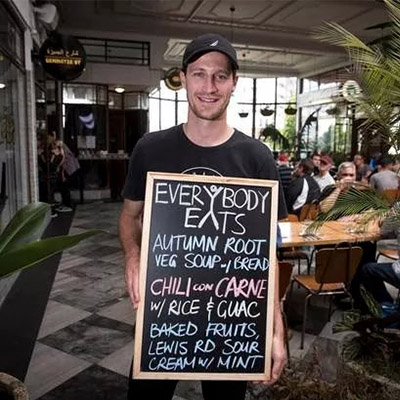 EVERYBODY
EATS
AUTUMN ROOT
VEG SOUP w/ BREAD
CHILI CON CARNE
W/ RICE & GUAC
BAKED FRUITS,
LEWIS RD SOUR
CREAM W/ MINT